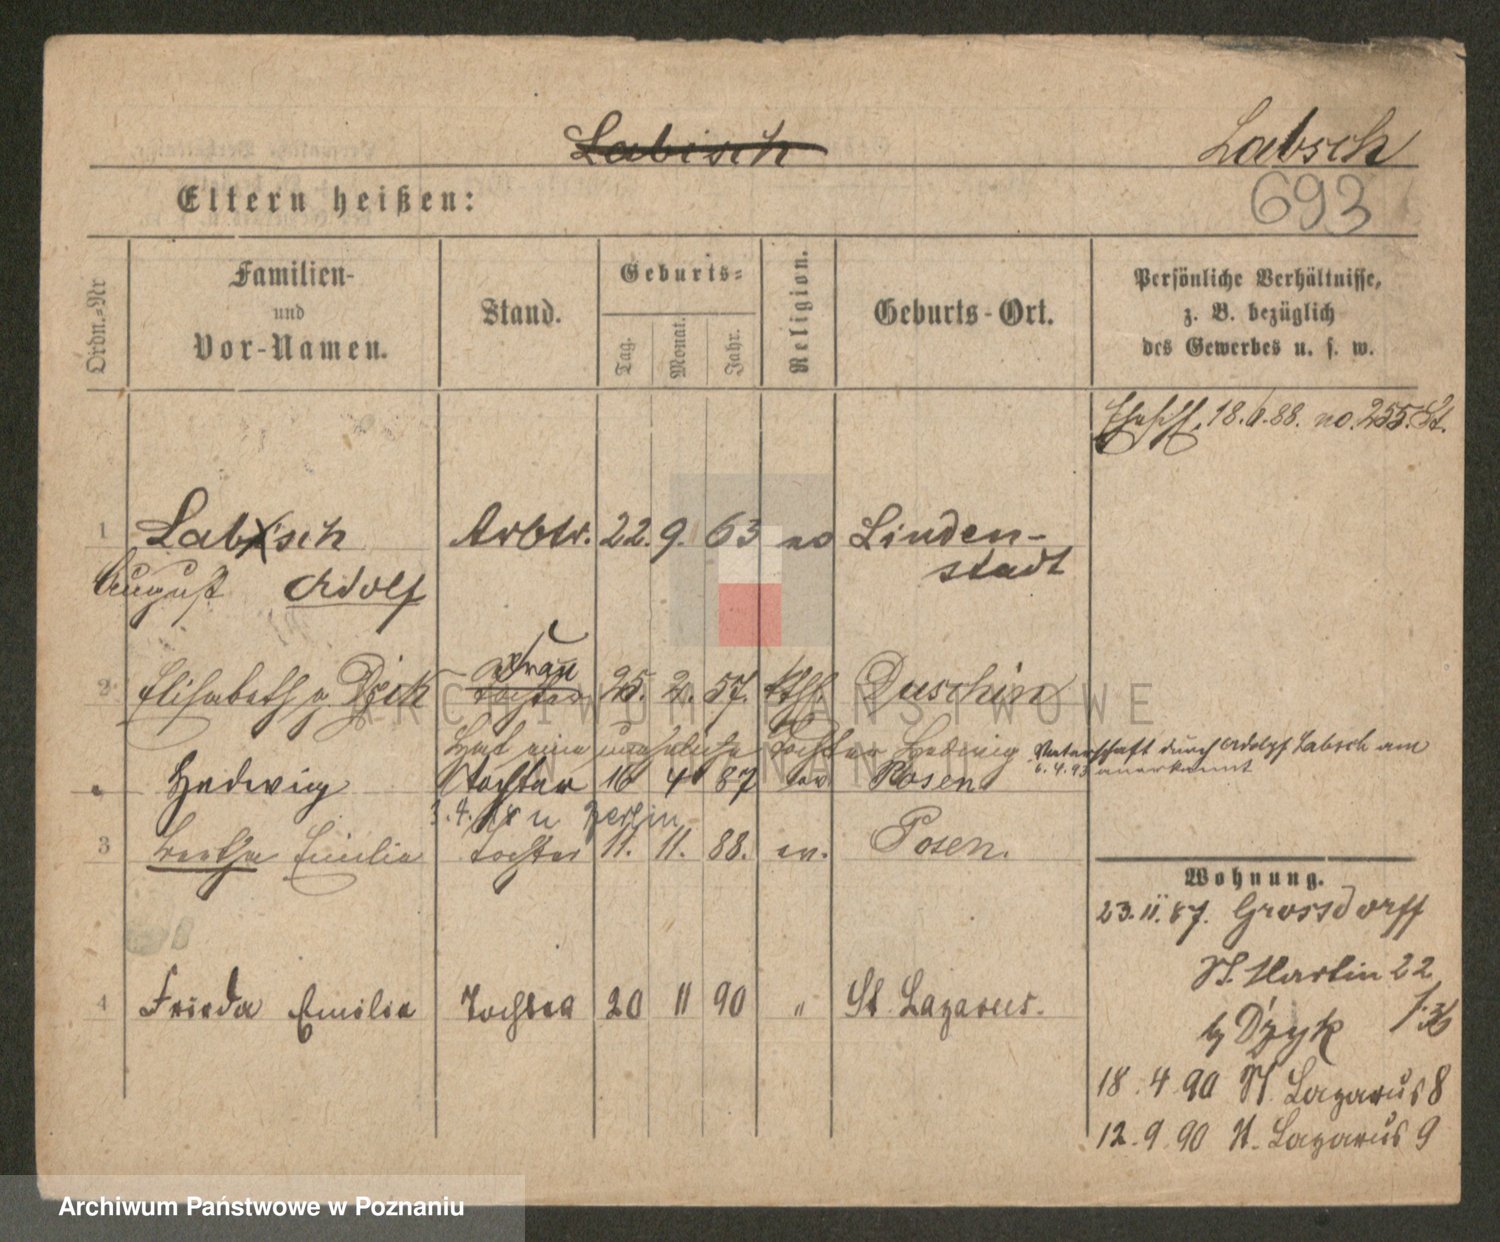 Labisch
Labsch
693
Eltern heißen:
Ordn.-Nr
Familien-
und
Vor-Namen.
Stand.
Geburts-
Tag.
Monat.
Jahr.
Religion.
Geburts-Ort.
Persönliche Verhältnisse,
z. B. bezüglich
des Gewerbes u. s. w.
18.6.88. no. 255.
1 Labisch Arbtr. 22. 9. 63 Linden-
stadt
August Adolf
Frau
2 Elisabeth g. Dzik Tochter 25. 2. 57. kth Duschin
Hat eine uneheliche Tochter Hedwig Vaterschaft durch Adolf Labsch am
6.4.93 anerkannt
Hedwig Tochter 16 4 87 ev. Posen
3.4. n Berlin
3 Bertha Emilie Tochter 11. 11. 88. ev. Posen.
Wohnung.
23.11.87. Grossdorff
St. Martin 22
b/ Dzyk
4 Frieda Emilie Tochter 20 11 90 " St. Lazarus.
18.4.90 St. Lazarus 8
12.9.90 St. Lazarus 9
ARCHIWUM PAŃSTWOWE
W POZNANIU
Archiwum Państwowe w Poznaniu